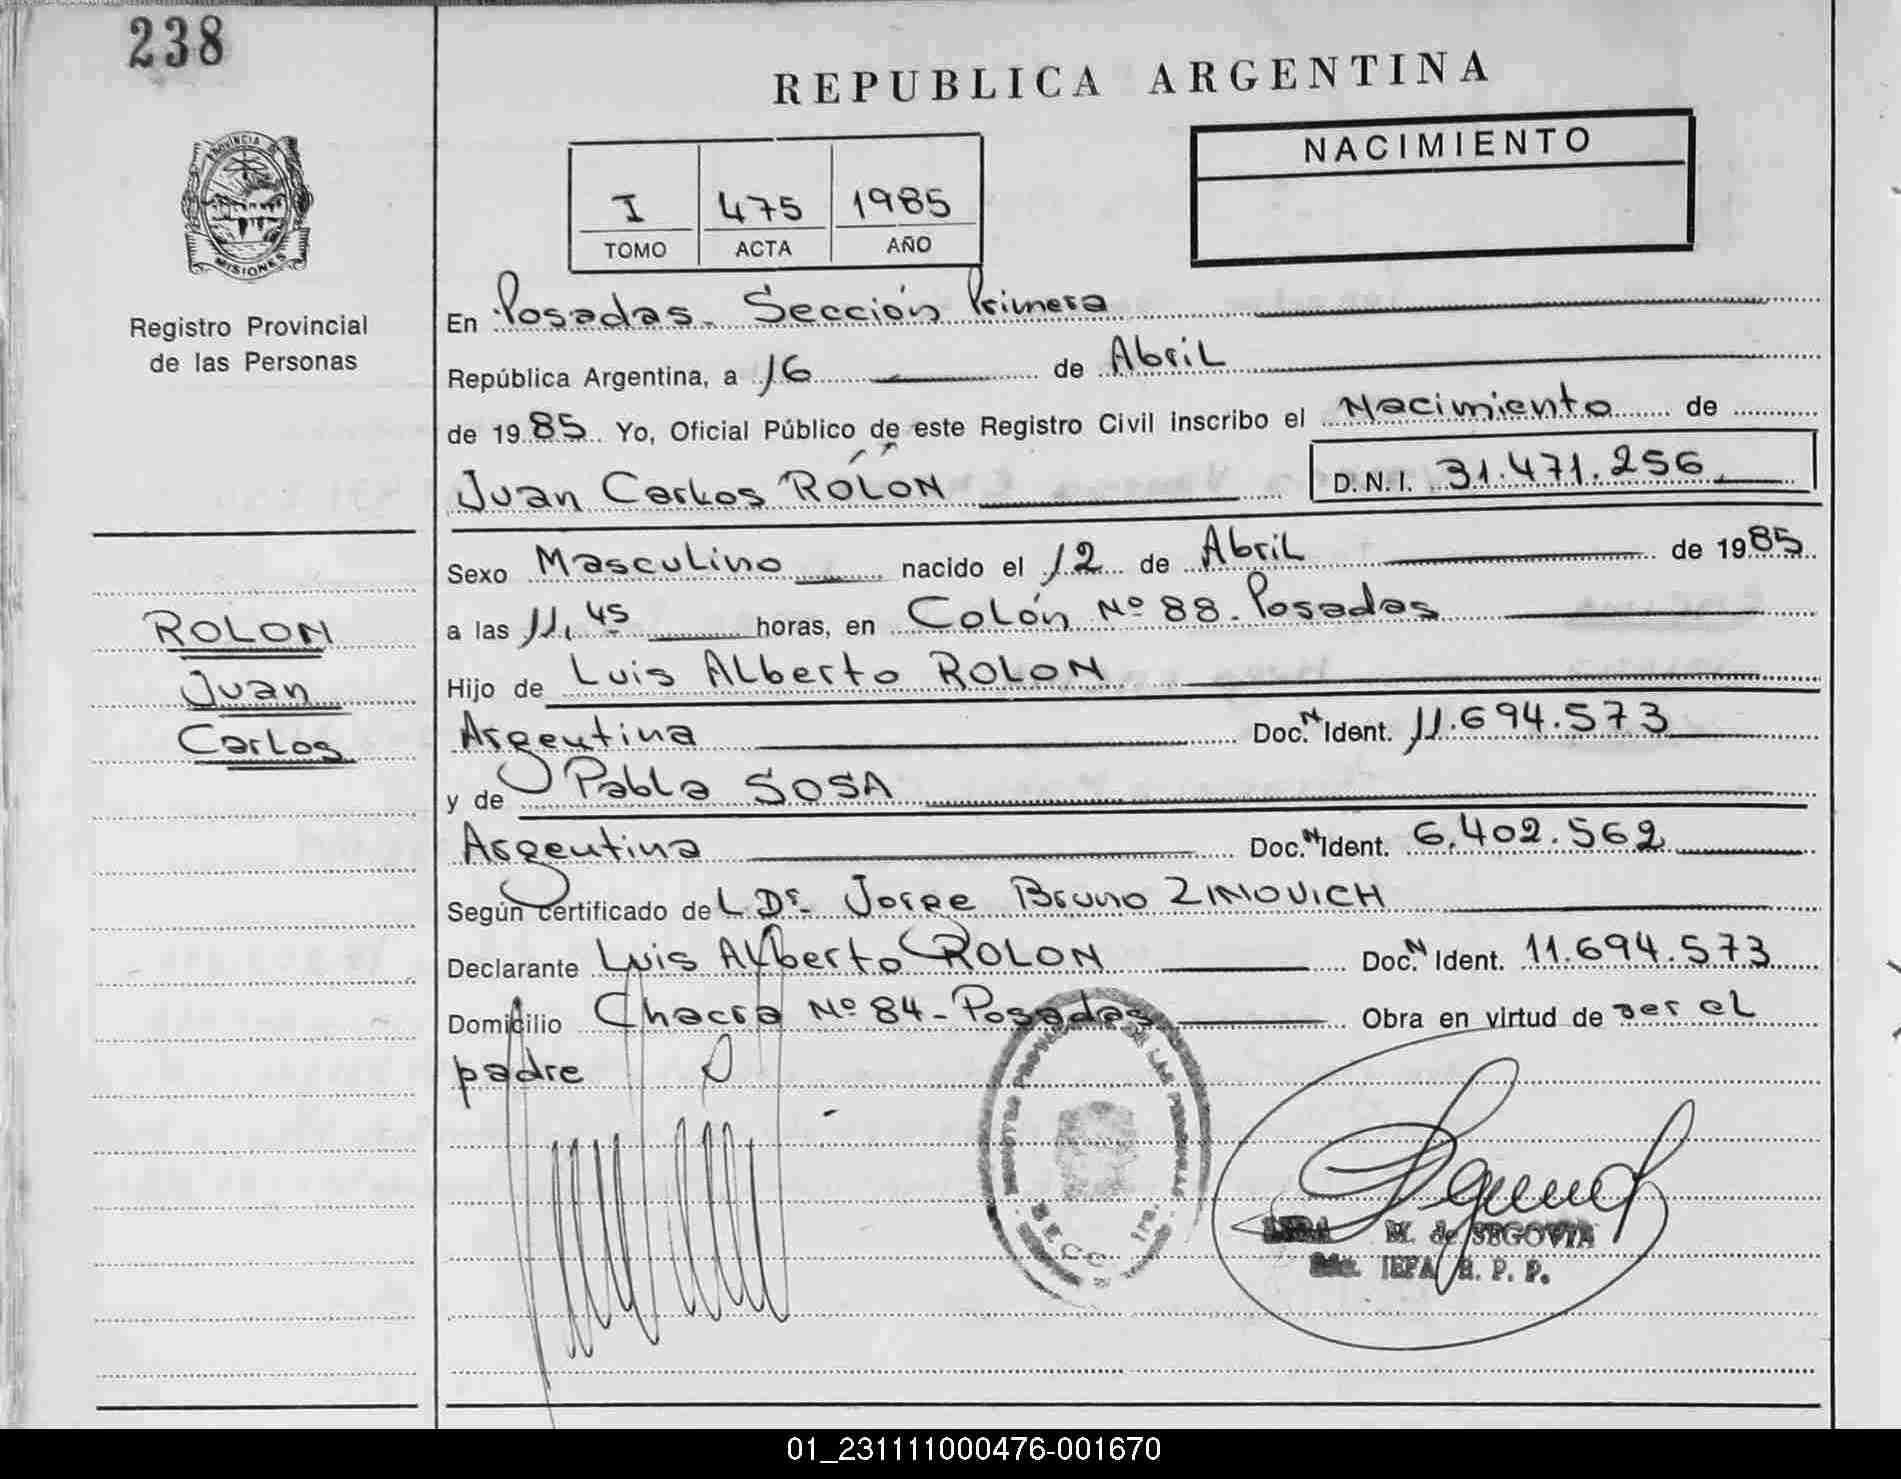 238
REPUBLICA ARGENTINA
NACIMIENTO
I 475 1985
TOMO ACTA AÑO
PROVINCIA DE
MISIONES
Registro Provincial
de las Personas
En Posadas - Sección Primera
República Argentina, a 16 de Abril
de 1985 Yo, Oficial Público de este Registro Civil inscribo el Nacimiento de
Juan Carlos ROLON D.N.I. 31.471.256
Sexo Masculino nacido el 12 de Abril de 1985
a las 11,45 horas, en Colón Nº 88 - Posadas
Hijo de Luis Alberto ROLON
Argentina Doc. N Ident. 11.694.573
y de Pabla SOSA
Argentina Doc. N Ident. 6.402.562
Según certificado del Dr. Jorge Bruno ZINOVICH
Declarante Luis Alberto ROLON Doc. N Ident. 11.694.573
Domicilio Chacra Nº 84 - Posadas Obra en virtud de ser el
padre
ROLON
Juan
Carlos
DE LAS PERSONAS
SECC. 1ra.
M. de SEGOVIA
JEFA R. P. P.
01_231111000476-001670